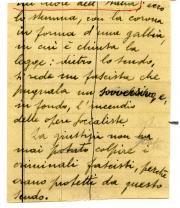 nel cuore dell'Italia; ecco
lo stemma, con la corona
in forma d'una gabbia,
in cui è chiusa la
legge: dietro lo scudo,
si vede un fascista che
pugnala un sovversivo, e,
in fondo, l'incendio
delle opere socialiste.
La giustizia non ha
mai potuto colpire i
criminali fascisti, perchè
erano protetti da questo
scudo.